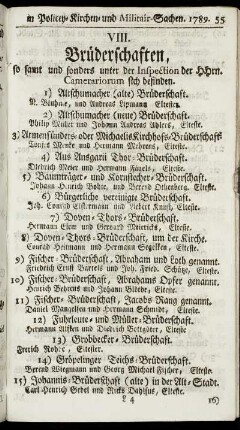 in Policey-Kirchen-und Militair-Sachen. 1789. 55
VIII.
Brüderschaften,
so samt und sonders unter der Inspection der HHrn.
Camerariorum sich befinden.
1) Altschumacher (alte) Brüderschaft.
und Andreas Lipmann, Eltesten.
2) Altschumacher (neue) Brüderschaft.
Philip Müller und Johann Andreas Ahlers, Elteste.
3) Armensünders- oder Michaelis Kirchhofs-Brüderschaft
und Hermann Mehrens, Elteste.
4) Aus Ansgarii Thor-Brüderschaft.
Diedrich Meier und Hermann Elteste.
5) Baumträger- und Kornstecher-Brüderschaft.
Johann Henrich Bohte, und Berend Oltenberg, Elteste.
6) Bürgerliche vereinigte Brüderschaft.
Joh. Conrad und Elteste.
7) Doven-Thors-Brüderschaft.
Hermann und Gerhard Elteste.
8) Doven-Thors-Brüderschaft, um der Kirche.
Conrad Heitmann und Hermann Elteste.
9) Fischer-Brüderschaft, Abraham und Loth genannt.
Friedrich Ernst Bartels und Joh. Fried. Schütte, Elteste.
10) Fischer-Brüderschaft, Abrahams Opfer genannt.
Henrich und Johann Elteste.
11) Fischer-Brüderschaft, Jacobs Rang genannt.
Daniel Mangelsen und Hermann Schmidt, Elteste.
12) Fuhrleute- und Müller-Brüderschaft.
Hermann und Diedrich Elteste.
13) Grobbecker-Brüderschaft.
Elteste.
14) Gröpelinger Teichs-Brüderschaft.
Berend Wiegmann und Georg Michael Fischer, Elteste.
15) Johannis-Brüderschaft (alte) in der Alt-Stadt.
Carl Henrich Gebel und Elteste.
L 4
16)